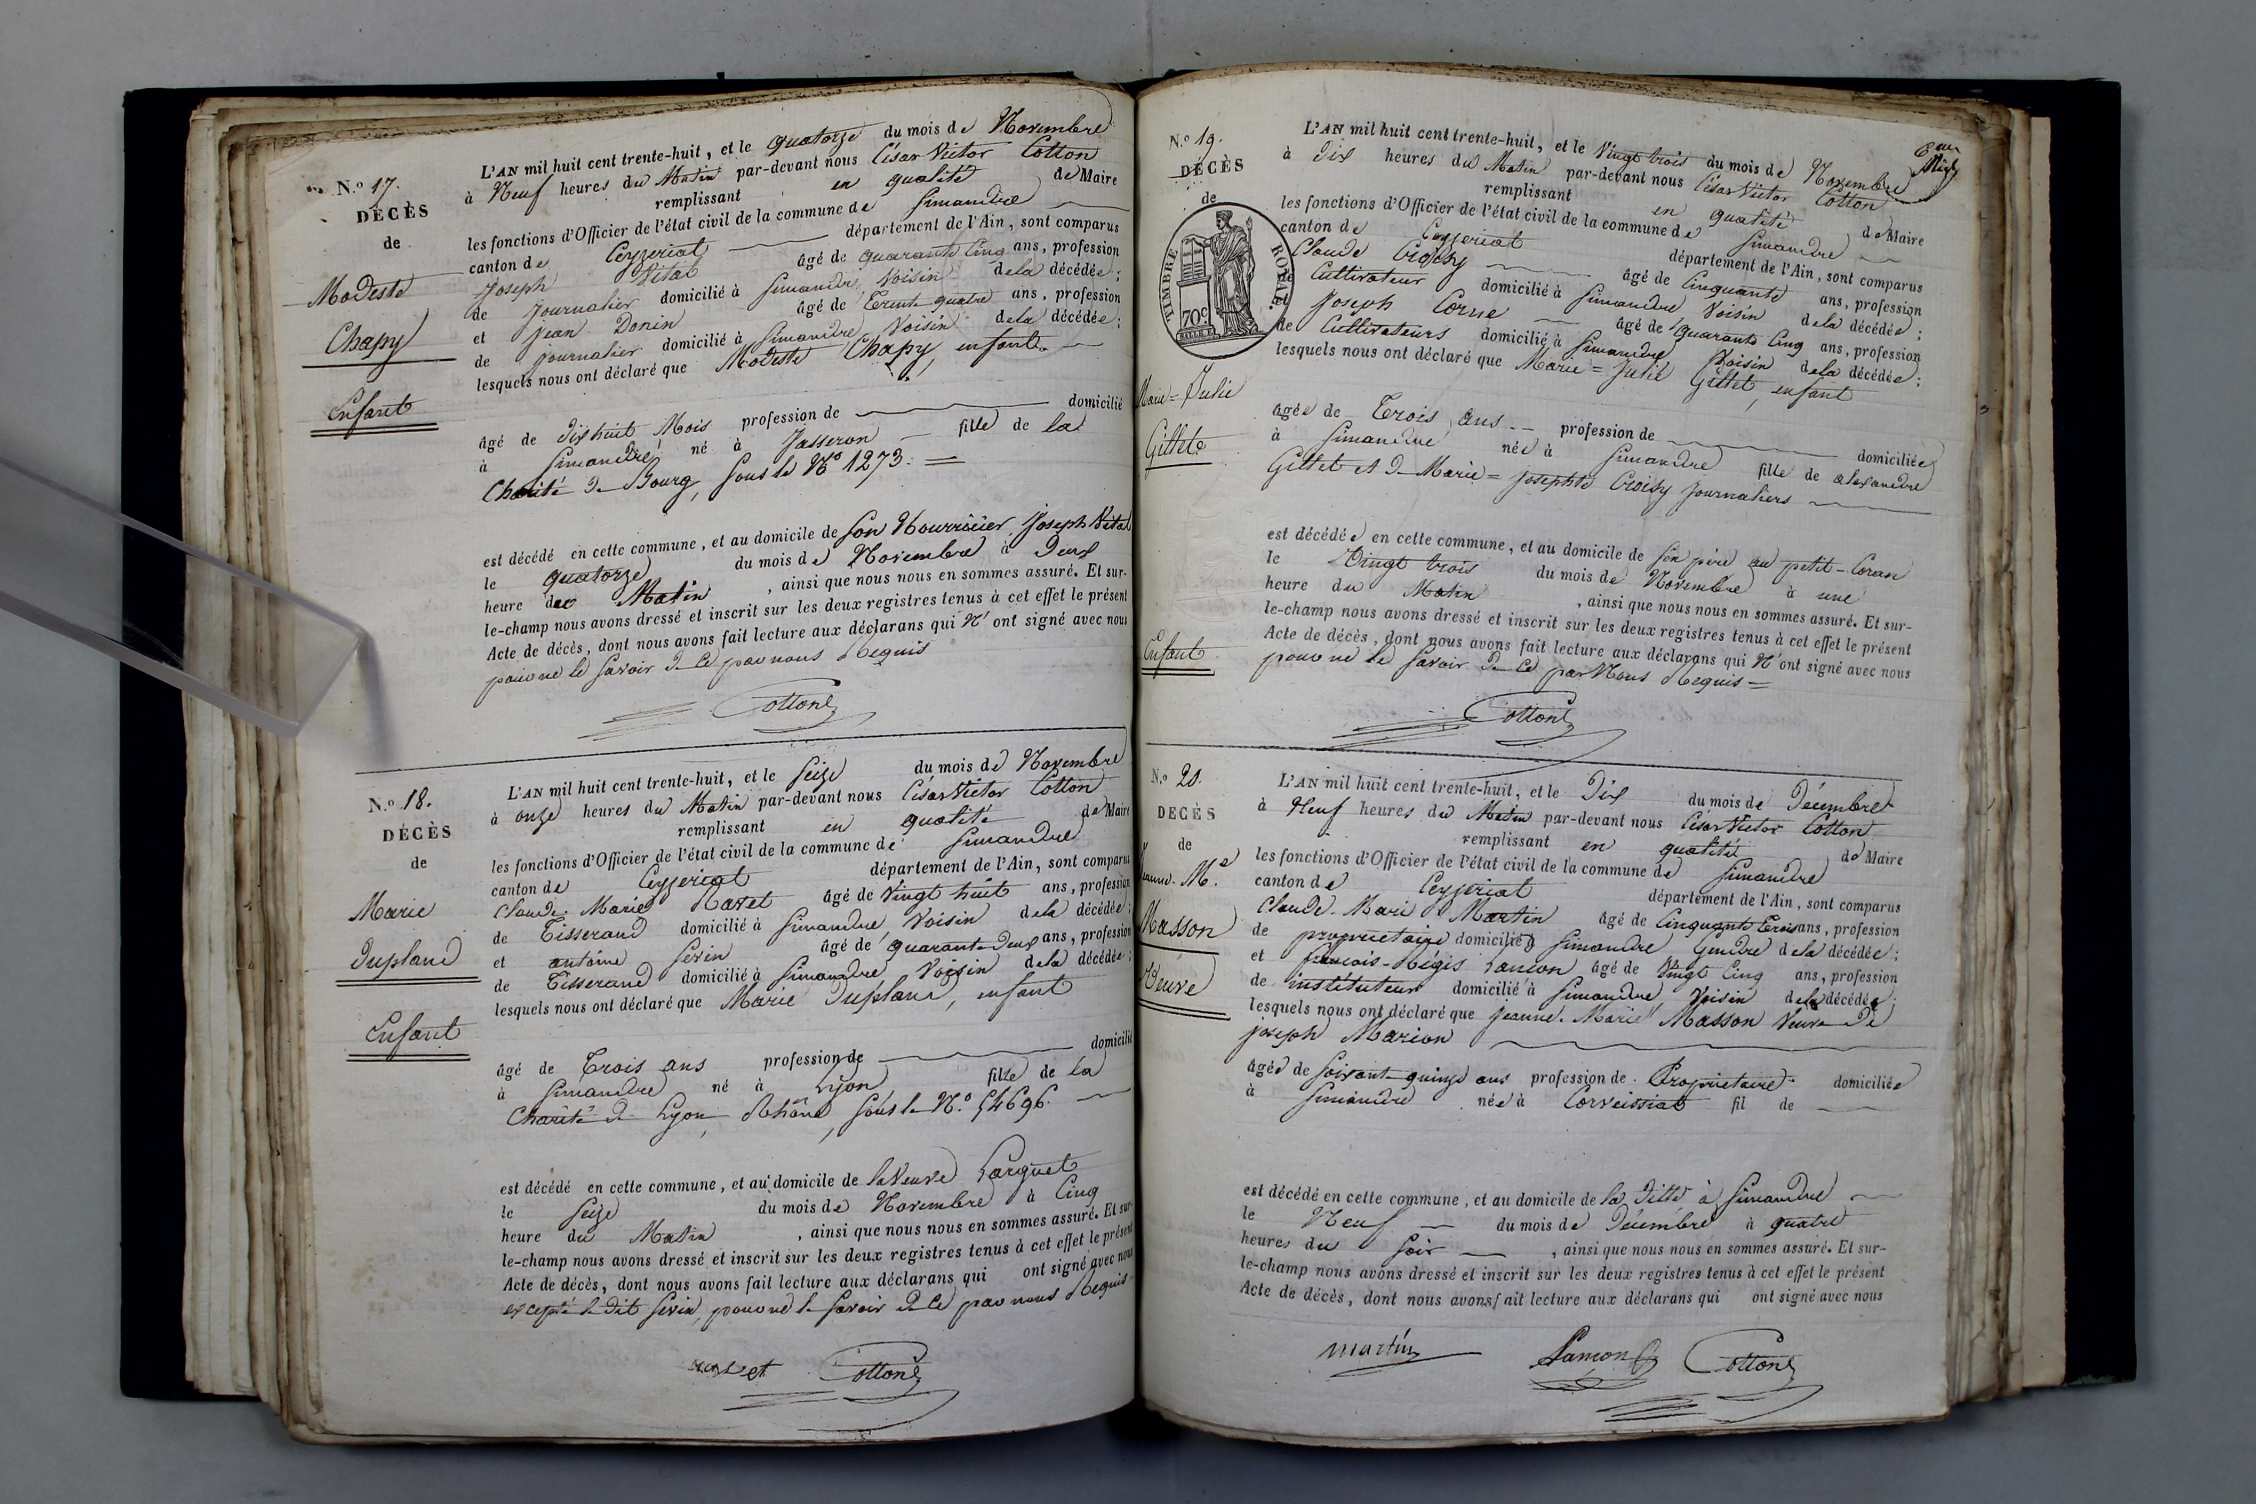 N.o 17.
DÉCÈS
de
Modeste
Chapy
Enfant
L'AN mil huit cent trente-huit, et le quatorze du mois de Novembre
à Neuf heures du Matin par-devant nous César Victor Cotton
remplissant en qualité de Maire
les fonctions d'Officier de l'état civil de la commune de Simandre
canton de Ceyzeriat département de l'Ain, sont comparus
Joseph Vital âgé de quarante Cinq ans, profession
de Journalier domicilié à Simandre, Voisin de la décédée;
et Jean Donin âgé de Trente quatre ans, profession
de Journalier domicilié à Simandre, Voisin de la décédée;
lesquels nous ont déclaré que Modeste Chapy, enfant
âgé de dix huit Mois profession de domicilié
à Simandre, né à Jasseron fille de la
Charité de Bourg, sous le No 1273.
est décédé en cette commune, et au domicile de son Nourricier Joseph Vital
le quatorze du mois de Novembre à Deux
heure du Matin, ainsi que nous nous en sommes assuré. Et sur-
le-champ nous avons dressé et inscrit sur les deux registres tenus à cet effet le présent
Acte de décès, dont nous avons fait lecture aux déclarans qui N'ont signé avec nous
pour ne le savoir de ce par nous Requis
Cotton
N.o 18.
DÉCÈS
de
Marie
Dupland
Enfant
L'AN mil huit cent trente-huit, et le Seize du mois de Novembre
à onze heures du Matin par-devant nous César Victor Cotton
remplissant en qualité de Maire
les fonctions d'Officier de l'état civil de la commune de Simandre
canton de Ceyzeriat département de l'Ain, sont comparus
Claude-Marie Ravet âgé de Vingt huit ans, profession
de Tisserand domicilié à Simandre, Voisin de la décédée;
et antoine Sevin âgé de quarante-Deux ans, profession
de Tisserand domicilié à Simandre Voisin de la décédée;
lesquels nous ont déclaré que Marie Dupland, enfant
âgé de Trois ans profession de domicilié
à Simandre né à Lyon fille de la
Charité de Lyon, Rhône, sous le No. 54696.
est décédé en cette commune, et au domicile de la Veuve Larguet
le Seize du mois de Novembre à Cinq
heure du Matin, ainsi que nous nous en sommes assuré. Et sur-
le-champ nous avons dressé et inscrit sur les deux registres tenus à cet effet le présent
Acte de décès, dont nous avons fait lecture aux déclarans qui ont signé avec nous
excepté le dit Sevin, pour ne le savoir de ce par nous Requis
ravet Cotton
N.o 19.
DÉCÈS
de
TIMBRE ROYAL.
70c
Marie=Julie
Gillet
Enfant
L'AN mil huit cent trente-huit, et le Vingt trois du mois de Novembre
à Dix heures du Matin par-devant nous César Victor Cotton
remplissant en qualité de Maire
les fonctions d'Officier de l'état civil de la commune de Simandre
canton de Ceyzeriat département de l'Ain, sont comparus
Claude Croisy âgé de Cinquante ans, profession
de Cultivateur domicilié à Simandre Voisin de la décédée;
Joseph Corne âgé de quarante Cinq ans, profession
de Cultivateurs domicilié à Simandre Voisin de la décédée;
lesquels nous ont déclaré que Marie=Julie Gillet, enfant
âgée de Trois ans profession de domiciliée
à Simandre née à Simandre fille de alexandre
Gillet et de Marie=Josephte Croisy Journaliers
est décédée en cette commune, et au domicile de son père au petit-Coran
le Vingt trois du mois de Novembre à une
heure du Matin, ainsi que nous nous en sommes assuré. Et sur-
le-champ nous avons dressé et inscrit sur les deux registres tenus à cet effet le présent
Acte de décès, dont nous avons fait lecture aux déclarans qui N'ont signé avec nous
pour ne le savoir de ce par Nous Requis=
Cotton
N.o 20.
DÉCÈS
de
Jeanne-Me
Masson
Veuve
L'AN mil huit cent trente-huit, et le Dix du mois de Décembre
à Neuf heures du Matin par-devant nous César Victor Cotton
remplissant en qualité de Maire
les fonctions d'Officier de l'état civil de la commune de Simandre
canton de Ceyzeriat département de l'Ain, sont comparus
Claude-Marie Martin âgé de Cinquante Trois ans, profession
de propriétaire domicilié à Simandre Gendre de la décédée;
et francois-Régis Lancon âgé de Vingt Cinq ans, profession
de instituteur domicilié à Simandre Voisin de la décédée;
lesquels nous ont déclaré que Jeanne-Marie Masson Veuve de
joseph Marion
âgée de soixant quinze ans profession de Propriétaire domiciliée
à Simandre née à Corveissiat fil de
est décédé en cette commune, et au domicile de la Ditte à Simandre
le Neuf du mois de Décembre à quatre
heures du Soir, ainsi que nous nous en sommes assuré. Et sur-
le-champ nous avons dressé et inscrit sur les deux registres tenus à cet effet le présent
Acte de décès, dont nous avons fait lecture aux déclarans qui ont signé avec nous
martin Lancon Cotton